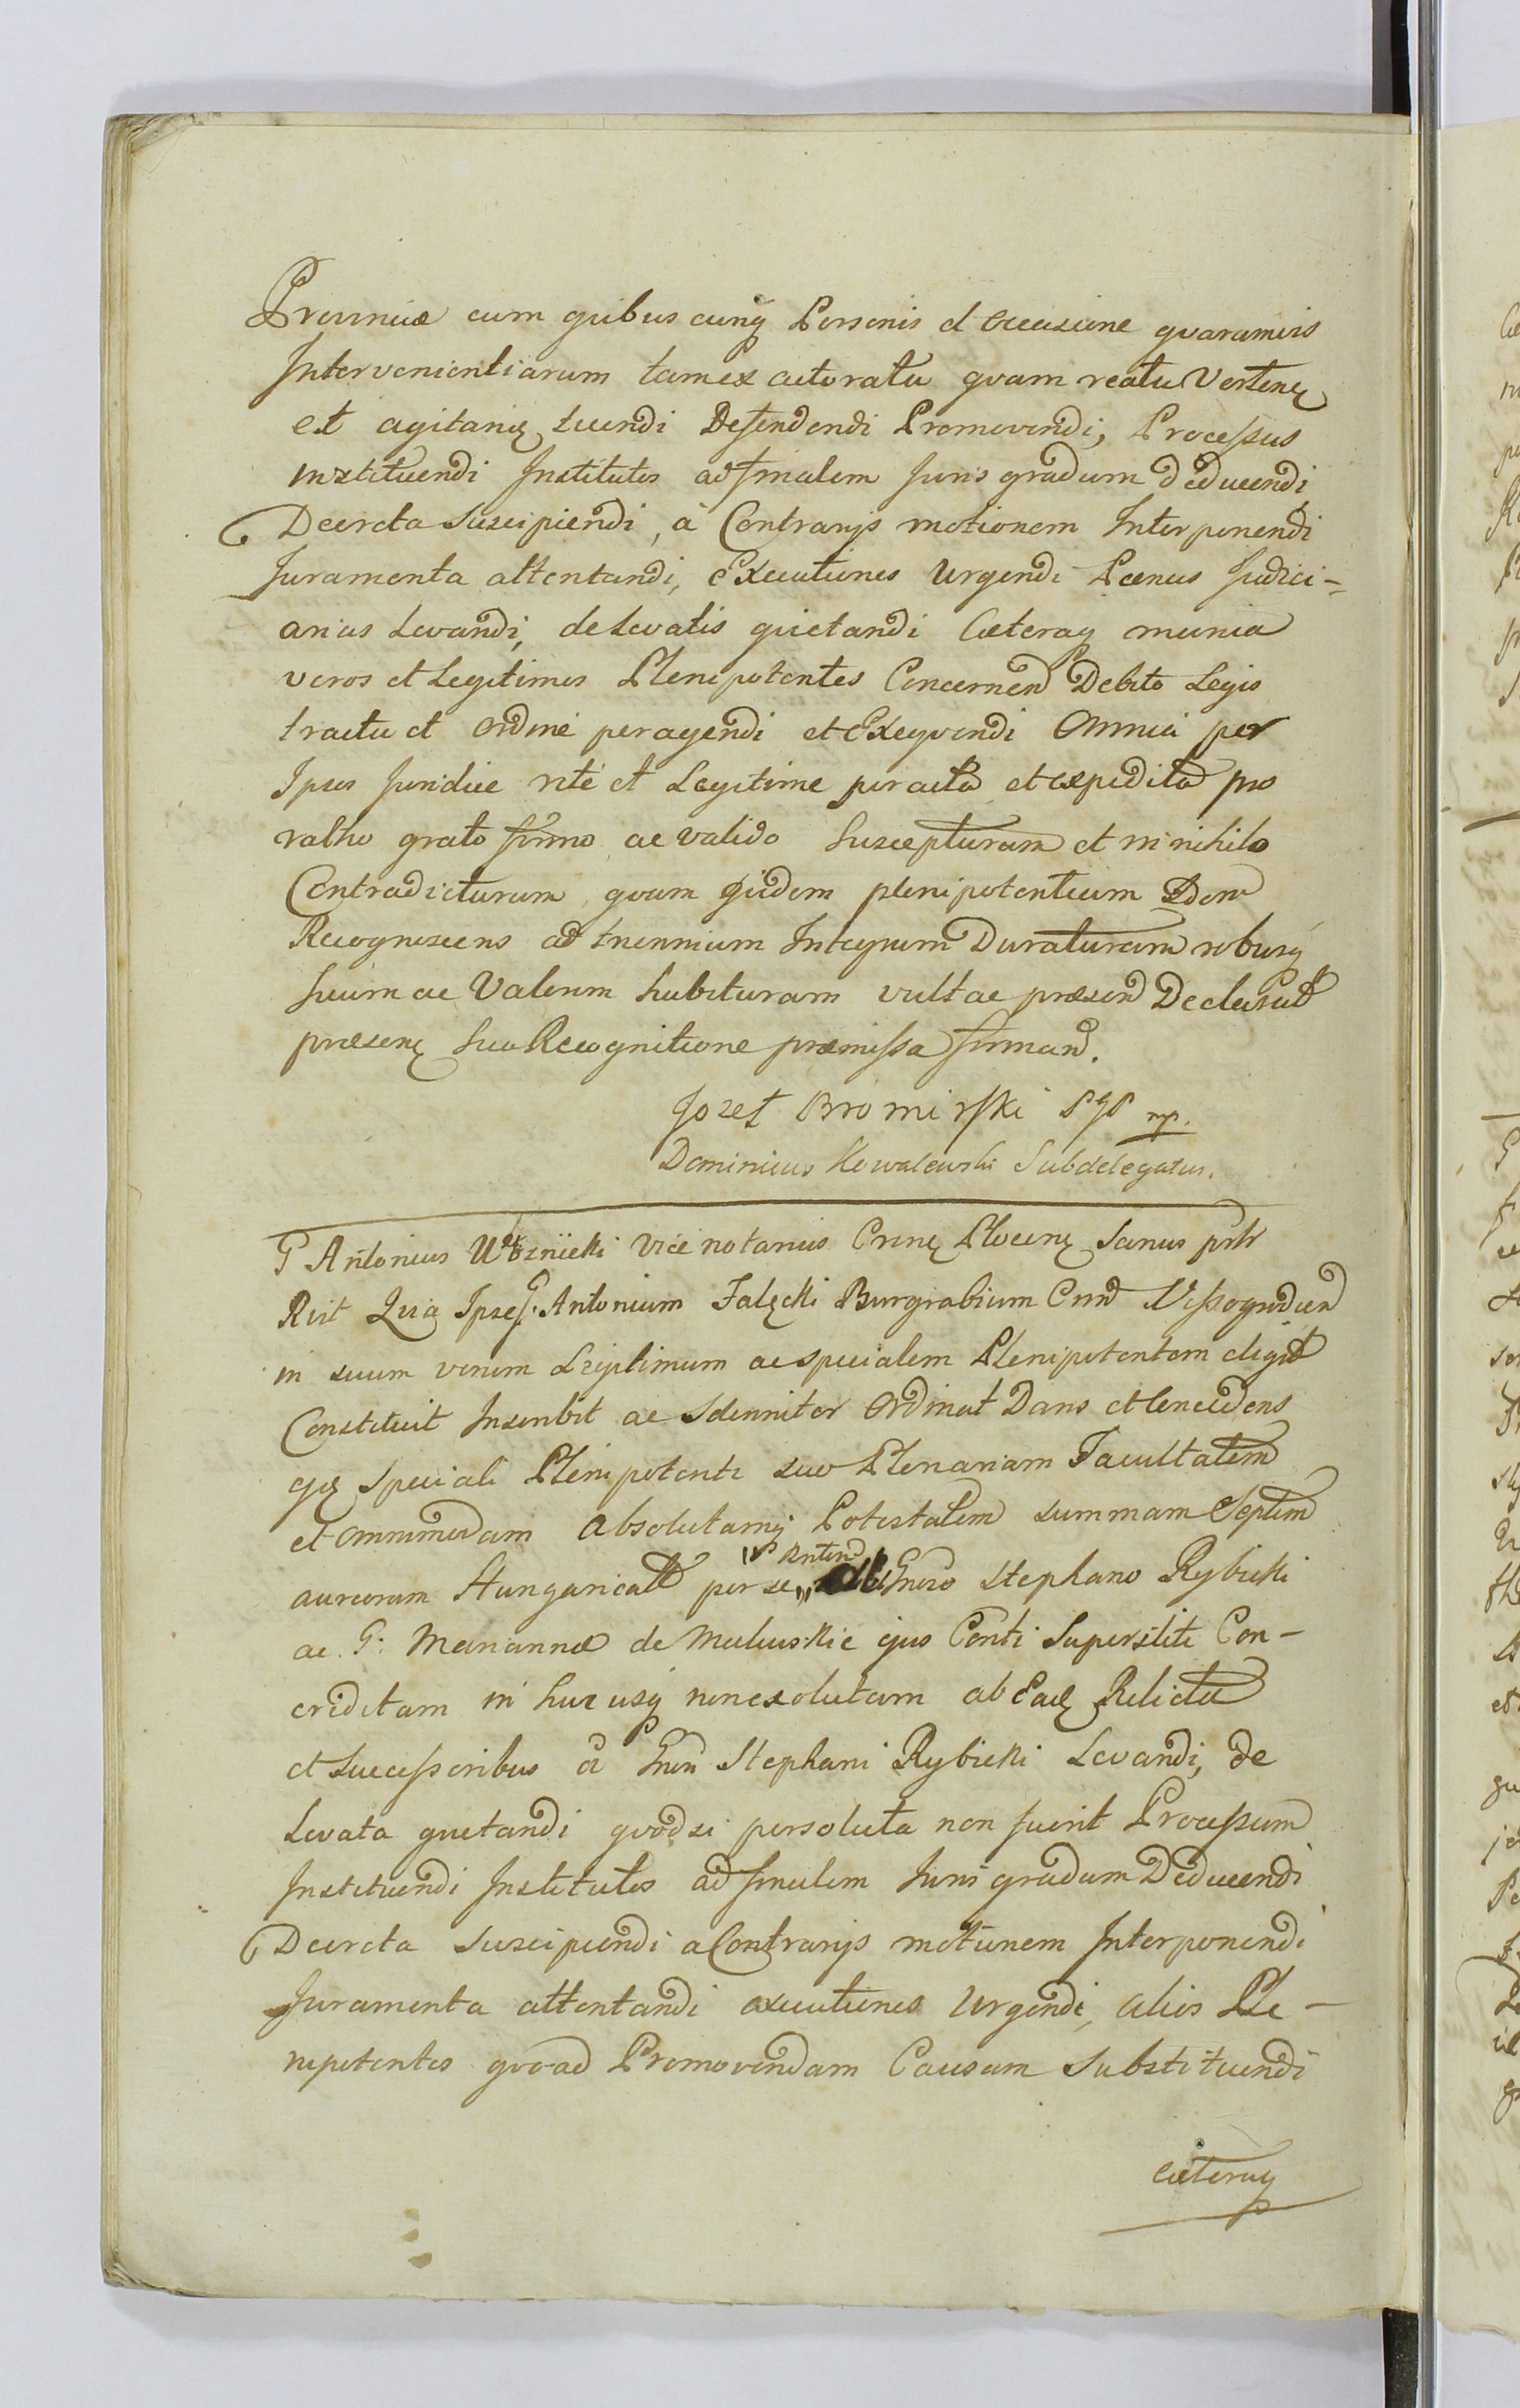 Provinciæ cum quibus cunq Personis et Occasione quarumvis
Intervenientiarum tam ex actoratu quam reatu Vertenę
et agitanię tuendi Defendendi Promovendi, Processus
instituendi Institutos ad finalem Juris gradum deducendi
Decreta Suscipiendi, à Contrarijs motionem Interponendi
Juramenta attentandi, Executiones Urgendi Pœnas Judici-
arias Levandi, de Levatis quietandi Cæteraq munia
veros et Legitimos Plenipotentes Concernen Debito Legis
tractu et ordine peragendi et Exequendi Omnia per
Ipsos Juridice rite et Legitime peracta et expedita pro
ratho grato firmo ac valido Suscepturum et in nihilo
Contradicturum, quam quidem plenipotentiam Idem
Recognoscens ad triennium Integrum Duraturam roburq
suum ac Valorem habituram vult ac præsen Declarat
præsenę sua Recognitione præmissa firman.
Jozef Bromirski SGP mp.
Dominicus Kowalewski Subdelegatus.
G Antonius Woźnicki Vice notarius Crnę Plocenę Sanus prlr
Rit Quia Ipse G. Antonium Falęcki Burgrabium Crnn Vissogradien
in suum verum Legitimum ac specialem Plenipotentem elegit
Constituit Inscribit ac Solenniter Ordinat Dans et Concedens
eję speciali Plenipotenti suo Plenariam Facultatem
et omnimodam Absolutamq Potestatem summam Septem
aureorum Hungaricall per se Gnroso Stephano Rybicki
ac G: Mariannæ de Maluskie ejus Conti Superstiti Con-
creditam in huc usq non exolutam ab Eadę Relicta
et Successoribus à Gnrn Stephani Rybicki Levandi, de
Levata quietandi quodsi persoluta non fuerit Processum
Instituendi Institutos ad finalem Juris gradum Deducendi
Decreta suscipiendi a Contrarijs motionem Interponendi
Juramenta attentandi executiones Urgendi, alios Ple-
nipotentes quoad Promovendam Causam Substituendi
cæteraq